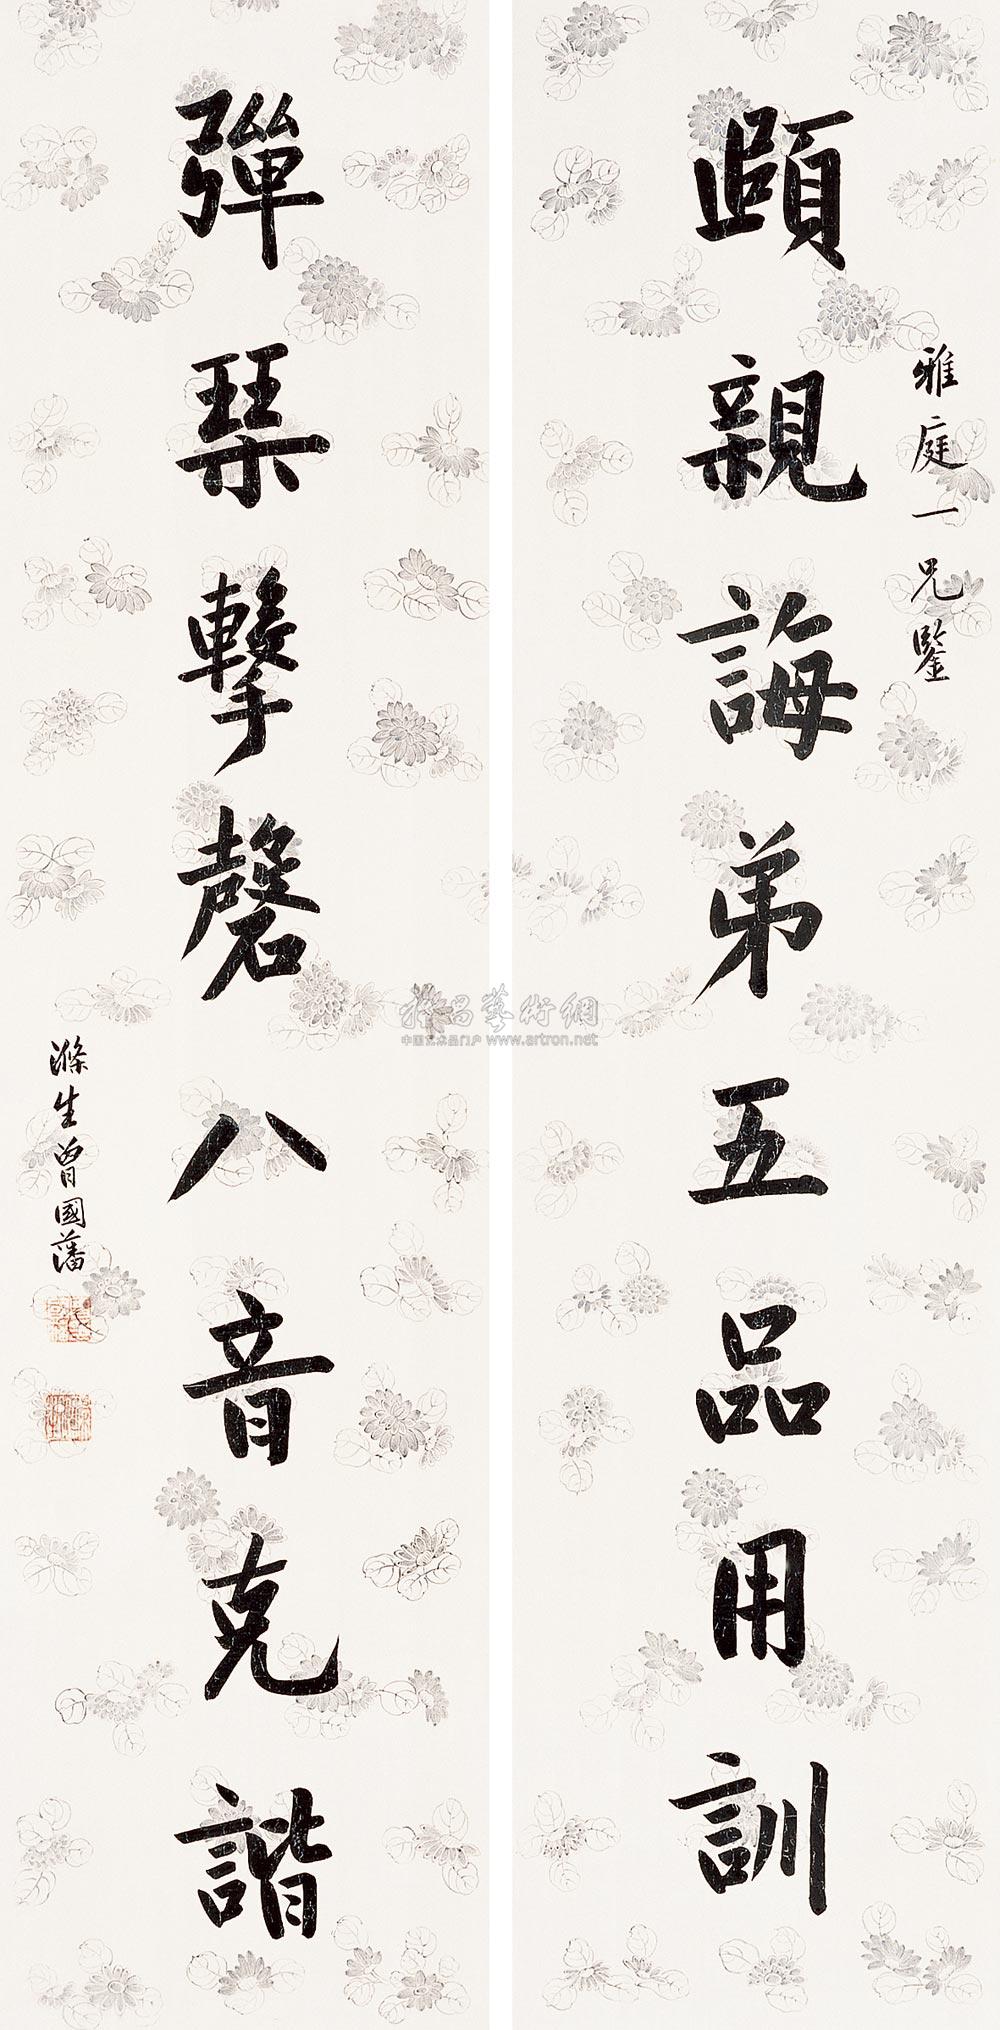 雅庭一兄鑒
顧親誨弟五品用訓
彈琴擊磬八音克諧
滌生曾國藩
中国艺术品门户 www.artron.net